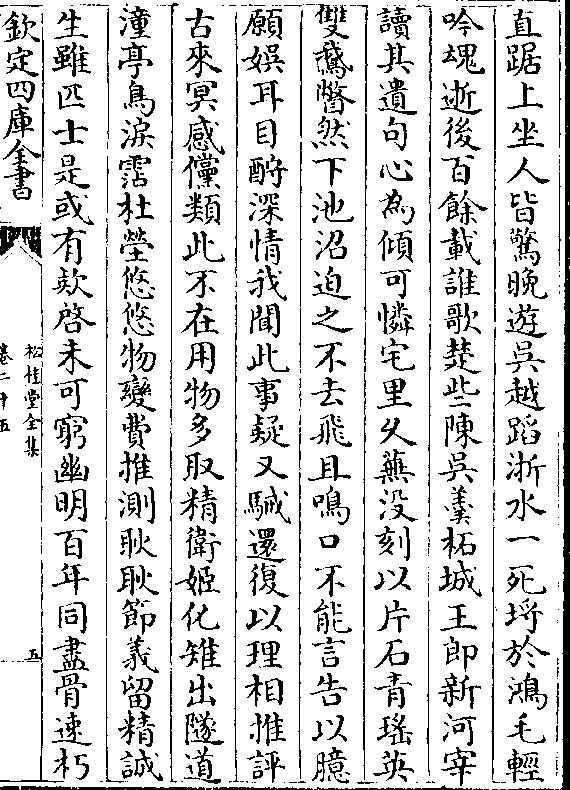 直踞上坐人皆驚晚遊吳越蹈浙水一死埒於鴻毛輕
吟魂逝後百餘載誰歌楚些陳吳羮柘城王郎新河宰
讀其遺句心為傾可憐宅里久蕪没刻以片石青瑤英
雙鵞瞥然下池沼迫之不去飛且鳴口不能言告以臆
願娱耳目酧深情我聞此事疑又駴還復以理相推評
古來冥感儻類此不在用物多取精衛姬化雉出隧道
潼亭鳥淚霑杜塋悠悠物變費推測耿耿節義留精誠
生雖匹士是或有欬啓未可窮幽明百年同盡骨速朽
欽定四庫全書
松桂堂全集
卷二十五
五